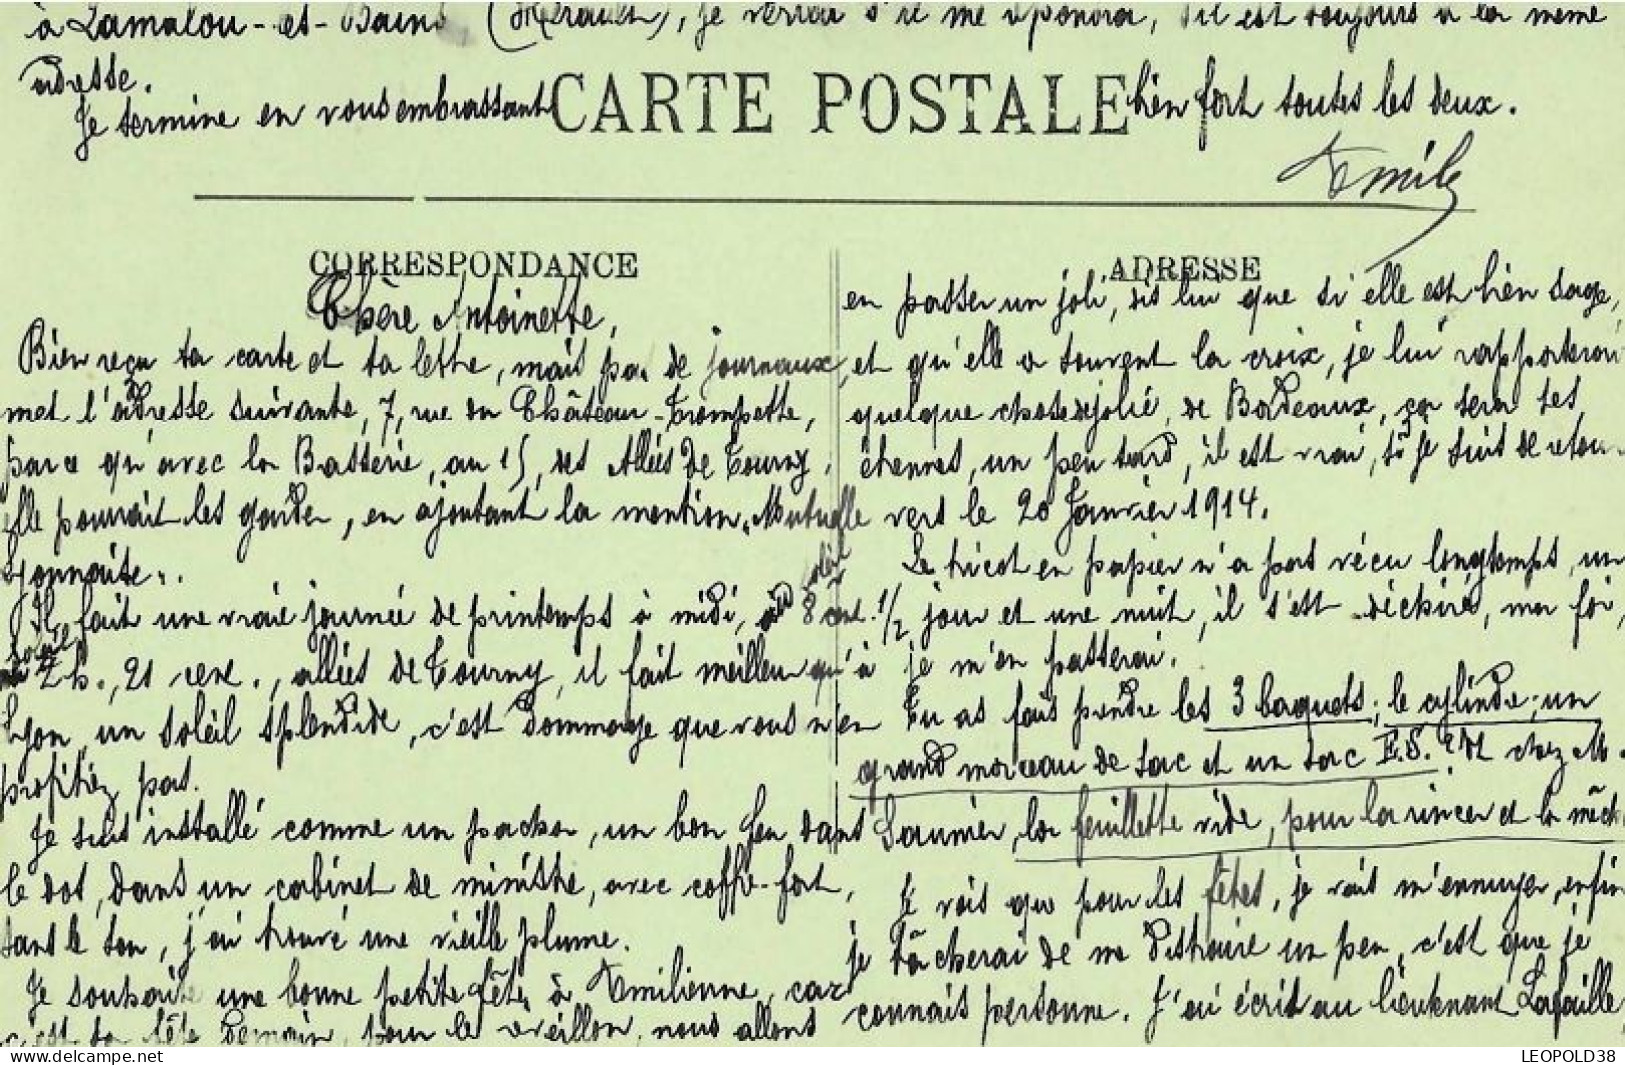 à Lamalou-les-Bains (Hérault), je verrai s'il me répondra, s'il est toujours à la même
adresse.
Je termine en vous embrassant bien fort toutes les deux.
CARTE POSTALE
Emile
CORRESPONDANCE
Chère Antoinette,
Bien reçu ta carte et ta lettre, mais pas de journaux,
met l'adresse suivante, 7, rue du Château-Trompette,
parce qu'avec la Batterie, au 15, des Allées de Tourny,
elle pourrait les garder, en ajoutant la mention "Mutuelle
Lyonnaise".
Il fait une vraie journée de printemps à midi, 8 cent.
soleil
2 h., 21 cent., allées de Tourny, il fait meilleur qu'à
Lyon, un soleil splendide, c'est dommage que vous n'en
profitiez pas.
Je suis installé comme un pacha, un bon feu dans
le dos, dans un cabinet de ministre, avec coffre-fort,
dans le ton, j'ai trouvé une vieille plume.
Je souhaite une bonne petite fête à Emilienne, car
c'est sa fête demain, pour le réveillon, nous allons
ADRESSE
en passer un joli, dis lui que si elle est bien sage,
et qu'elle a souvent la croix, je lui rapporterai
quelque chose de joli, de Bordeaux, ça sera ses
étrennes, un peu tard, il est vrai, si je suis de retour
vers le 20 Janvier 1914.
Le tricot en papier n'a pas vécu longtemps, un
1/2 jour et une nuit, il s'est déchiré, ma foi,
je m'en passerai.
Tu as fais prendre les 3 baquets; le cylindre; un
grand morceau de sac et un sac E.S. chez M.
Saunier, la feuillette vide, pour la rincer et la mêch
Je vois que pour les fêtes, je vais m'ennuyer, enfin
je tâcherai de me distraire un peu, c'est que je
connais personne. J'ai écrit au lieutenant Lafaille
LEOPOLD38